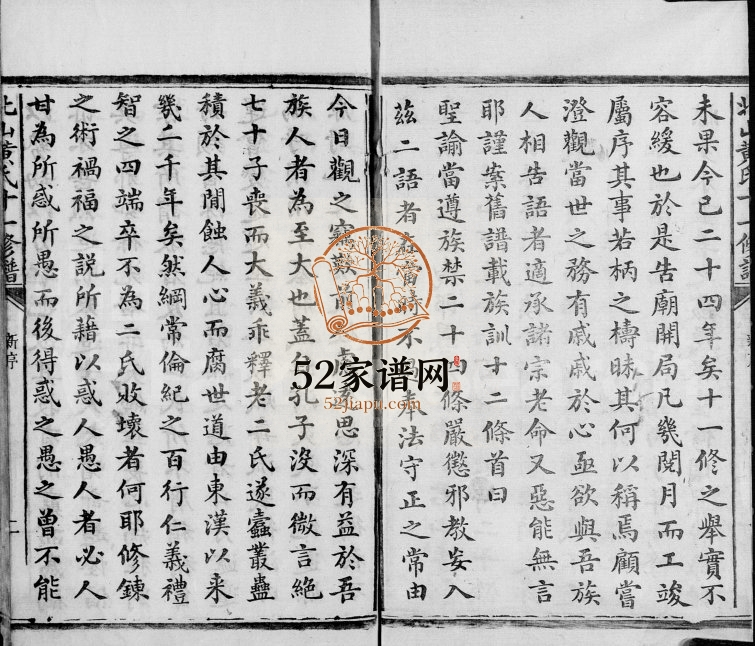 未果今已二十四年矣十一修之舉實不
容緩也於是告廟開局凡幾閱月而工竣
屬序其事若柄之檮昧其何以稱焉顧嘗
澄觀當世之務有戚戚於心亟欲與吾族
人相告語者適承諸宗老命又惡能無言
耶謹案舊譜載族訓十二條首曰
聖諭當遵族禁二十四條嚴懲邪教妄入
茲二語者在當時不過奉法守正之常由
今日觀之竊歎前 慮 思深有益於吾
族人者為至大也蓋自孔子沒而微言絕
七十子喪而大義乖釋老二氏遂蠹叢蠱
積於其閒蝕人心而腐世道由東漢以來
幾二千年矣然綱常倫紀之百行仁義禮
智之四端卒不為二氏敗壞者何耶修鍊
之術禍福之説所藉以惑人愚人者必人
甘為所惑所愚而後得惑之愚之曾不能
北山黃氏十一修譜
新序
二
52家谱网
52jiapu.com